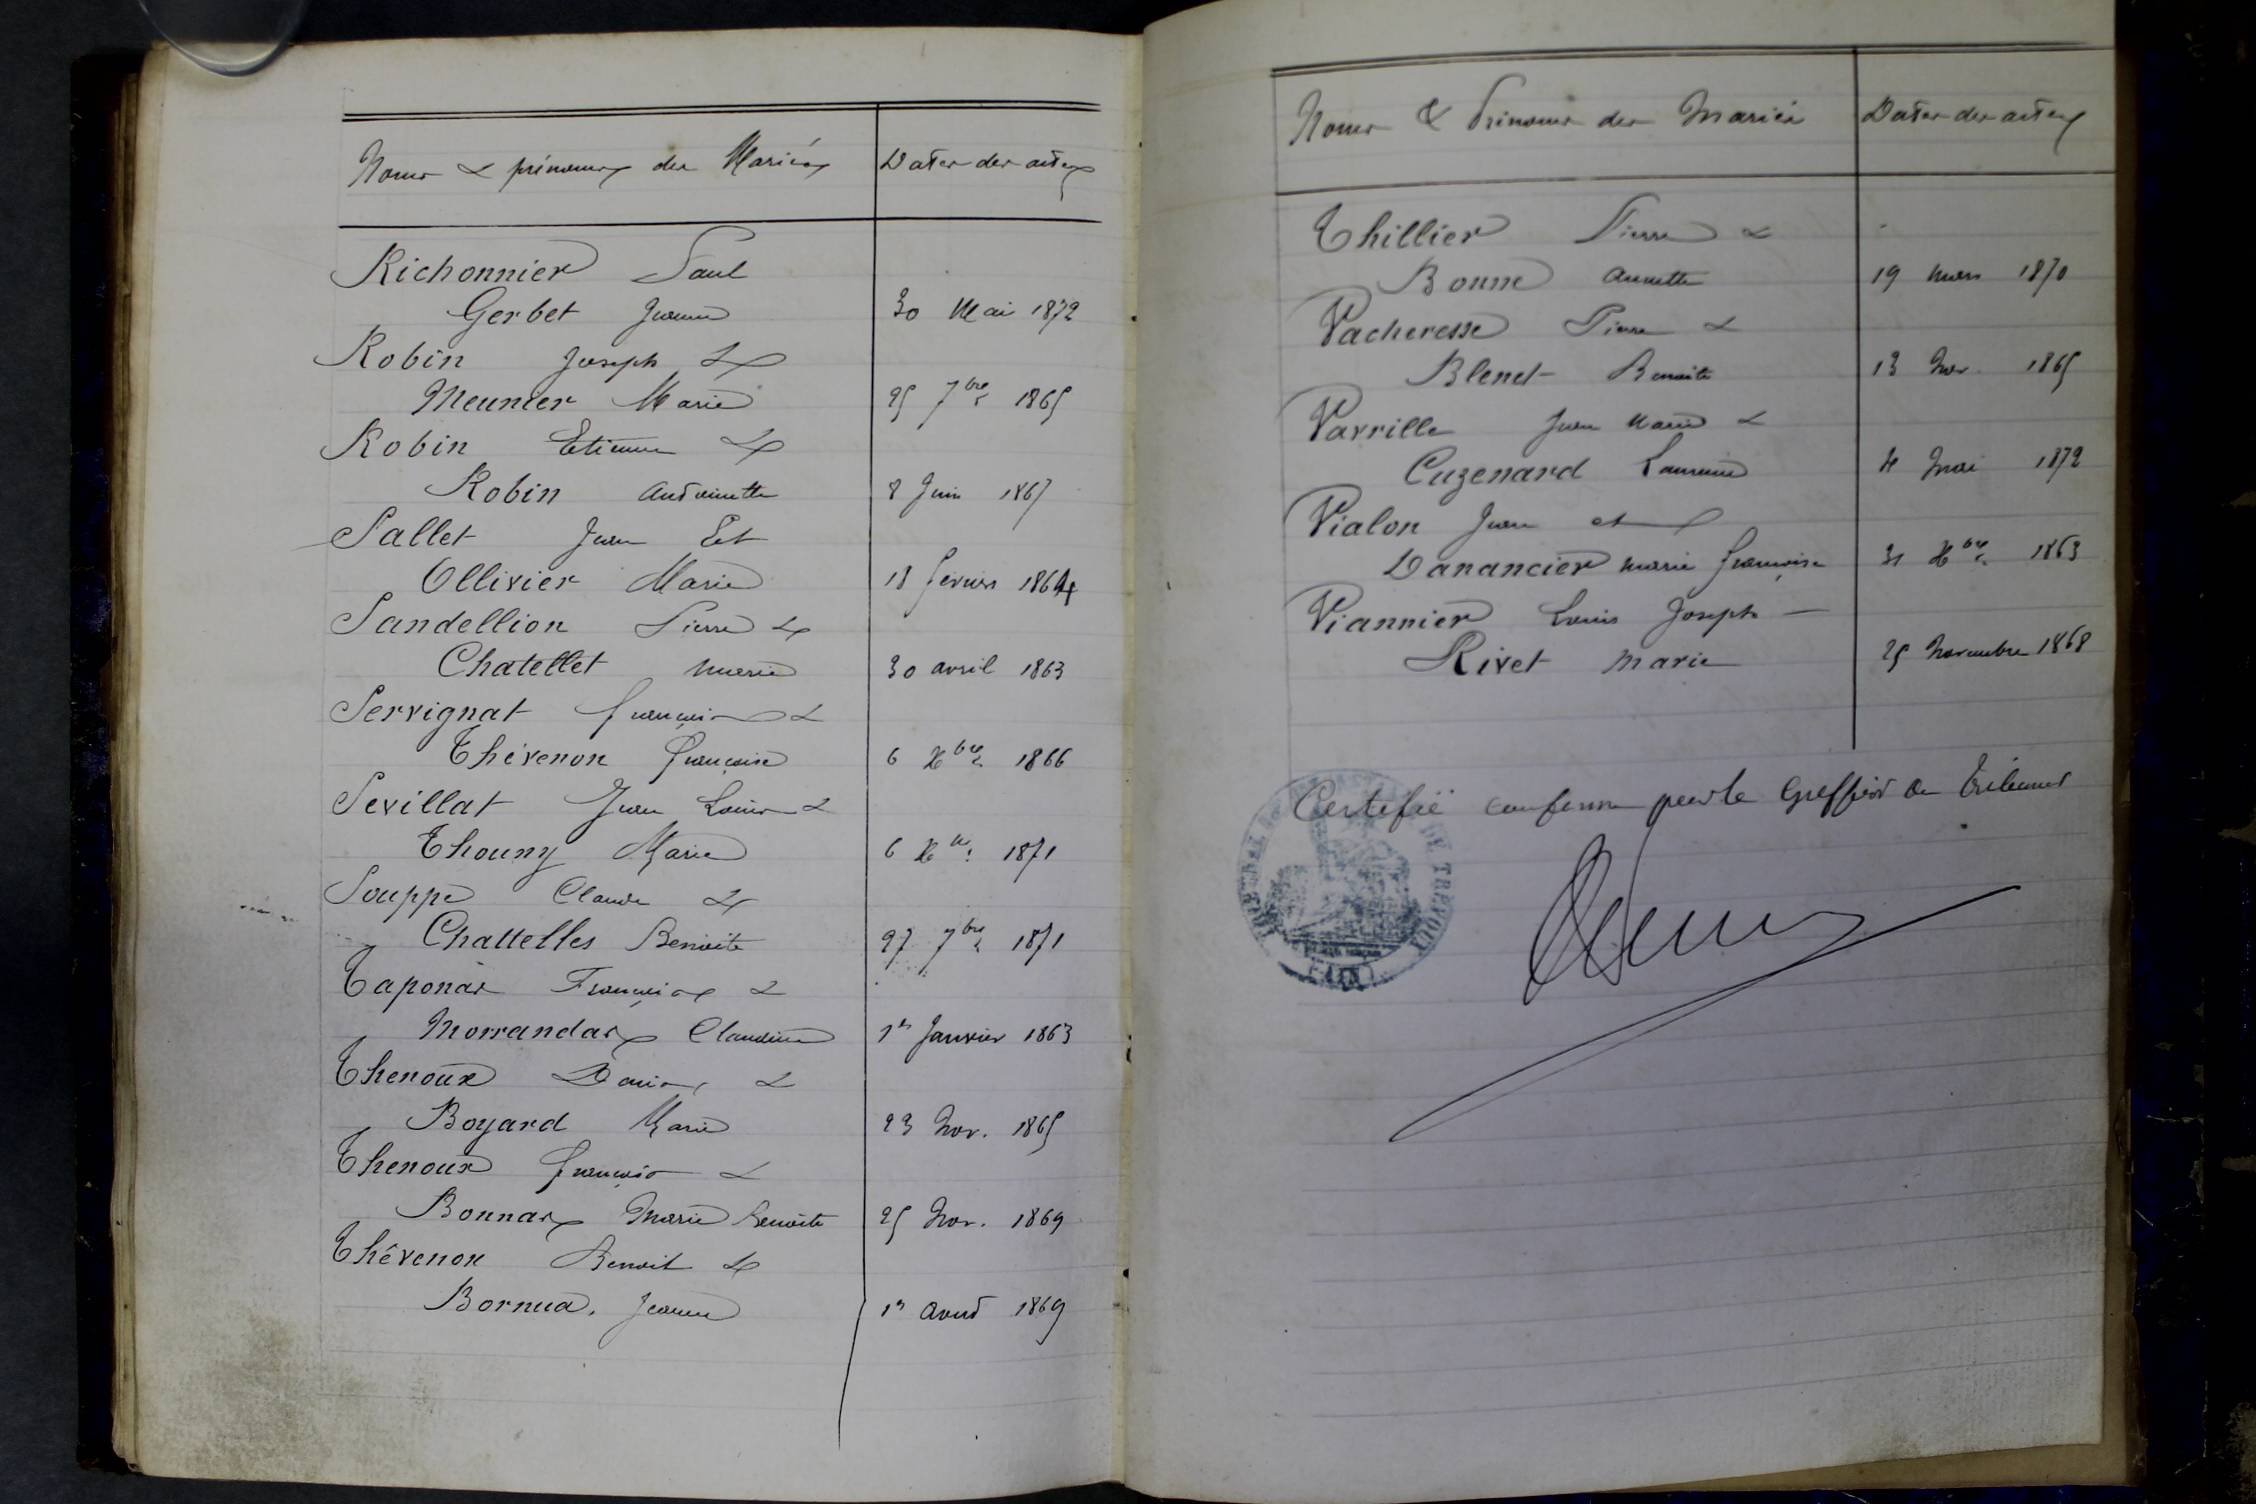 Noms & prénoms des Mariés Dates des actes
Richonnier Paul
Gerbet Jeanne 30 Mai 1872
Robin Joseph &
Meunier Marie 25 7bre 1865
Robin Etienne &
Robin Antoinette 8 Juin 1867
Sallet Jean Et
Ollivier Marie 18 février 1864
Sandellion Pierre &
Chatellet Marie 30 avril 1863
Servignat François &
Thévenon Françoise 6 Xbre 1866
Sevillat Jean Louis &
Thouny Marie 6 Xbre 1871
Souppe Claude &
Chattelles Benoite 27 7bre 1871
Taponas François &
Morrandas Claudine 1er Janvier 1863
Thenoux Denis &
Boyard Marie 23 Nov. 1865
Thenoux François &
Bonnas Marie Benoite 25 Nov. 1869
Thêvenon Benoit &
Bornua. Jeanne 1er Avril 1869
Noms & Prénoms des Mariés Dates des actes
Thillier Pierre &
Bonne Annette 19 Mars 1870
Vacheresse Pierre &
Blenet Benoite 13 Nov. 1865
Vavrille Jean Marie &
Cuzenard Laurence 4 Mai 1872
Vialon Jean et
Danancier Marie Françoise 31 Xbre 1863
Viannier Louis Joseph -
Rivet Marie 25 Novembre 1868
Certifié conforme par le Greffier du Tribunal
TRIBUNAL DE TREVOUX
(AIN)